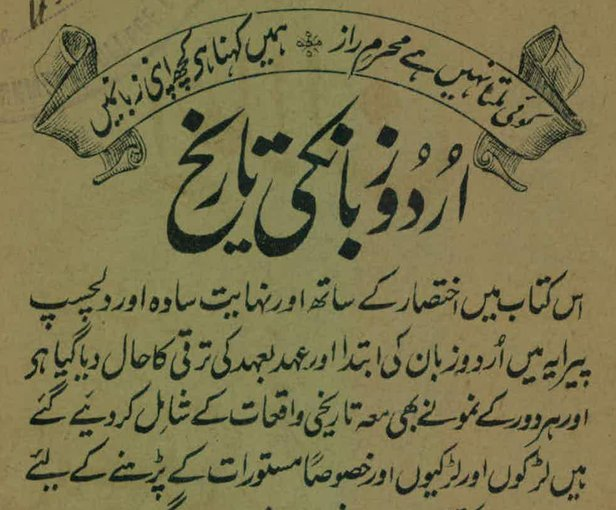 کوئی ملتا نہیں ہے محرم راز ہمیں کہنا ہی کچھ اپنی زبانمیں
اُردُو زبانکی تاریخ
اس کتاب میں اختصار کے ساتھ اور نہایت سادہ اور دلچسپ
پیرایہ میں اُردو زبان کی ابتدا اور عہد بعہد کی ترقی کا حال دیا گیا ہی
اور ہر دور کے نمونے بھی معہ تاریخی واقعات کے شامل کردیئے گئے
ہیں لڑکوں اور لڑکیوں اور خصوصاً مستورات کے پڑہنے کے لیئے